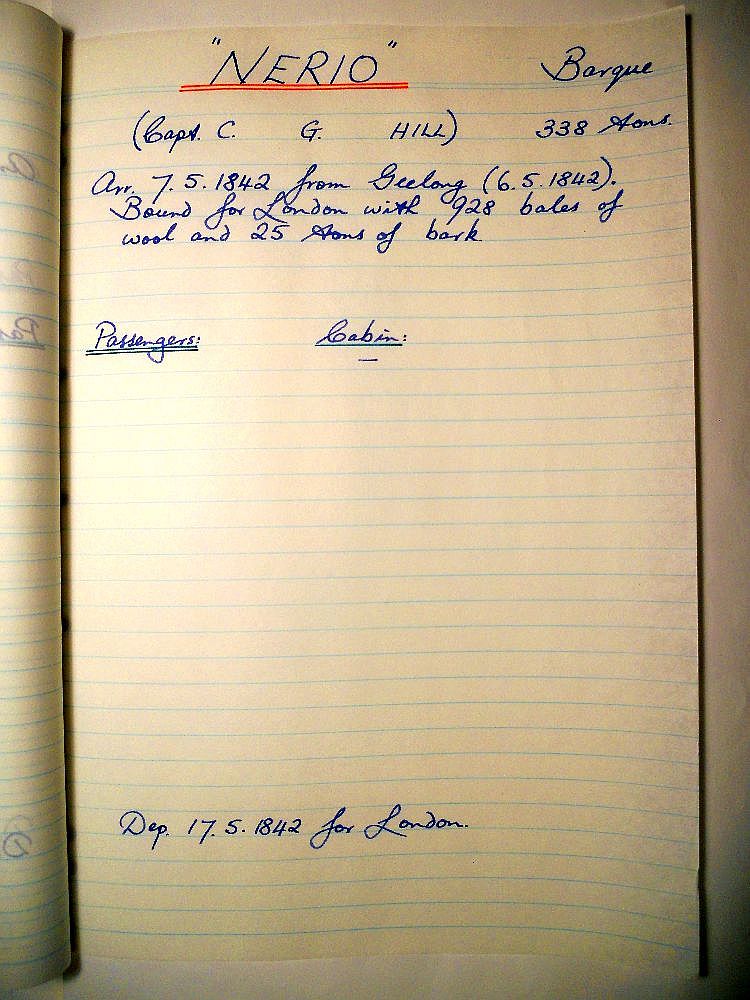 "NERIO" Barque
(Capt. C. G. HILL) 338 tons.
Arr. 7.5.1842 from Geelong (6.5.1842).
Bound for London with 928 bales of
wool and 25 tons of bark
Passengers: Cabin:
—
Dep. 17.5.1842 for London.